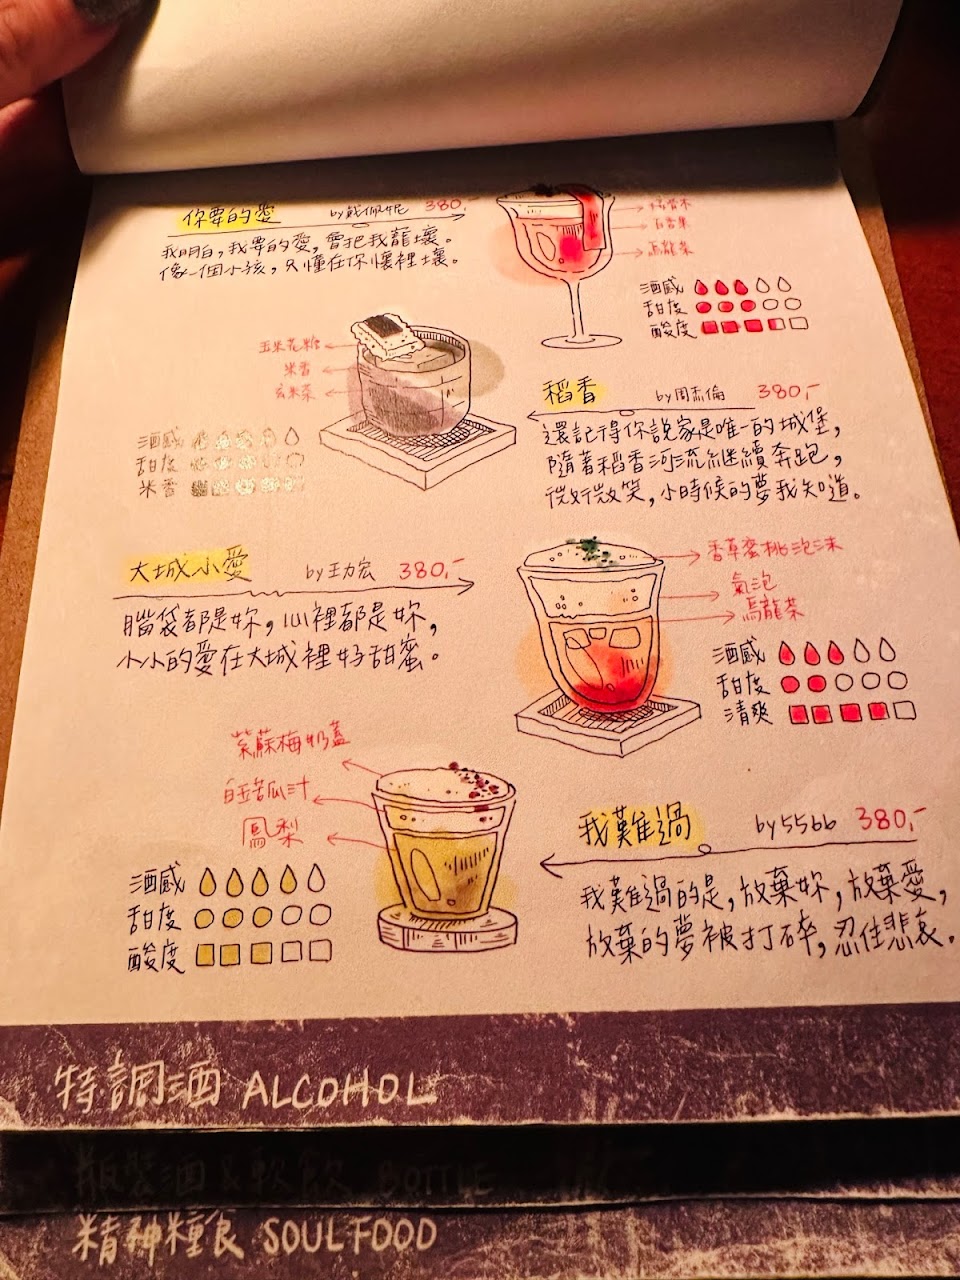 你要的愛 by戴佩妮 380,-
我明白,我要的愛,會把我寵壞。
像一個小孩,只懂在你懷裡壞。
百香果
烏龍茶
酒感
甜度
酸度
玉米花糖
米香
玄米茶
酒感
甜度
米香
稻香 by周杰倫 380,-
還記得你說家是唯一的城堡,
隨著稻香河流繼續奔跑,
微微笑,小時候的夢我知道。
大城小愛 by王力宏 380,-
腦袋都是妳,心裡都是妳,
小小的愛在大城裡好甜蜜。
香草蜜桃泡沫
氣泡
烏龍茶
酒感
甜度
清爽
紫蘇梅奶蓋
白苦瓜汁
鳳梨
酒感
甜度
酸度
我難過 by 5566 380,-
我難過的是,放棄妳,放棄愛,
放棄的夢被打碎,忍住悲哀。
特調酒 ALCOHOL
瓶裝酒&軟飲 BOTTLE
精神糧食 SOULFOOD